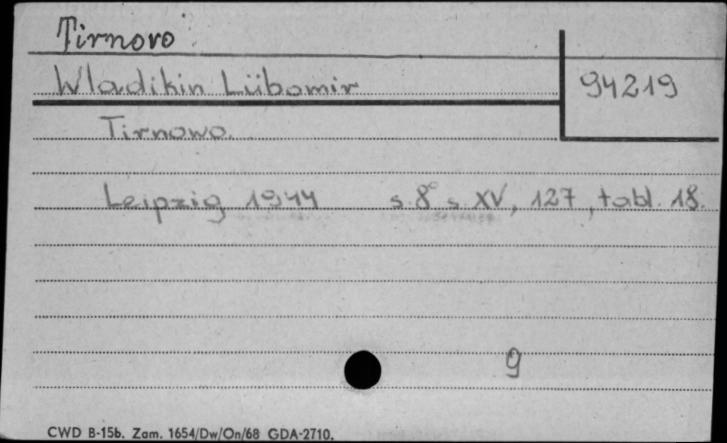 Tirnovo
Wladikin Lübomir
94219
Tirnowo.
Leipzig 1944 s. 8° s. XV, 127, tabl. 18.
9
CWD B-15b. Zam. 1654/Dw/On/68 GDA-2710.